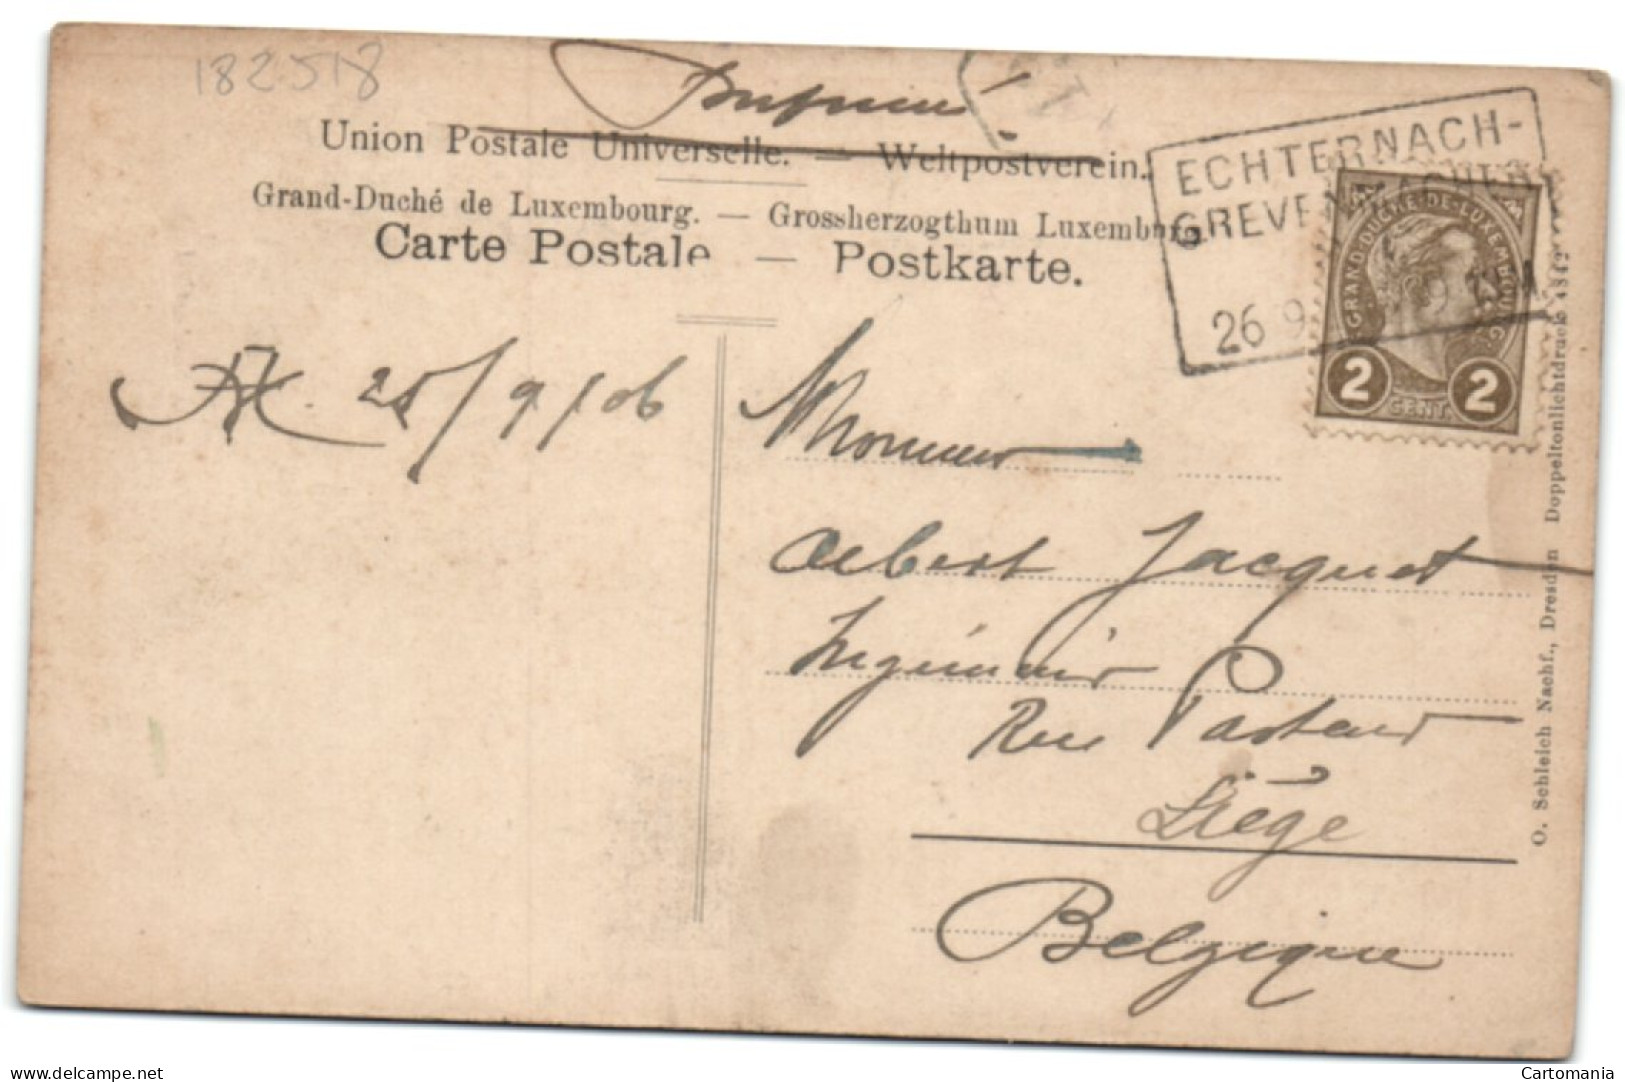 182518
Imprimé
Union Postale Universelle. — Weltpostverein.
Grand-Duché de Luxembourg. — Grossherzogthum Luxemburg.
Carte Postale — Postkarte.
ECHTERNACH-
GREVENMACHER
26 9
GRAND-DUCHÉ-DE-LUXEMBOURG
2 CENT. 2
25/9/06
Monsieur
Albert Jacquet
Ingénieur
Rue Pasteur
Liège
Belgique
O. Schleich Nachf., Dresden Doppeltonlichtdruck
Cartomania